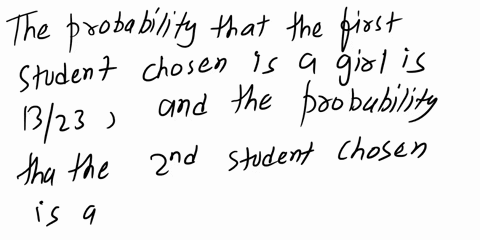 The probability that the first
student chosen is a girl is
13/23, and the probability
tha the 2nd student chosen
is a